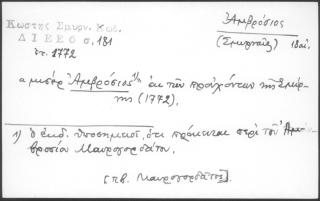 Κωστῆς Σμυρν. Κωδ.
Δ Ι Ε Ε Ε σ. 181
ἔτ. 1772
Ἀμβρόσιος
(Σμυρναῖος) 18αἰ.
α μισέρ Ἀμβρόσιος ¹⁾ ἐκ τῶν προὐχόντων τῆς Σμύρ-
νης (1772).
1) ὁ ἐκδ. ὑποσημειοῖ, ὅτι πρόκειται περὶ τοῦ Ἀμ-
βροσίου Μαυρογορδάτου.
[πβ. Μαυρογορδᾶτος].